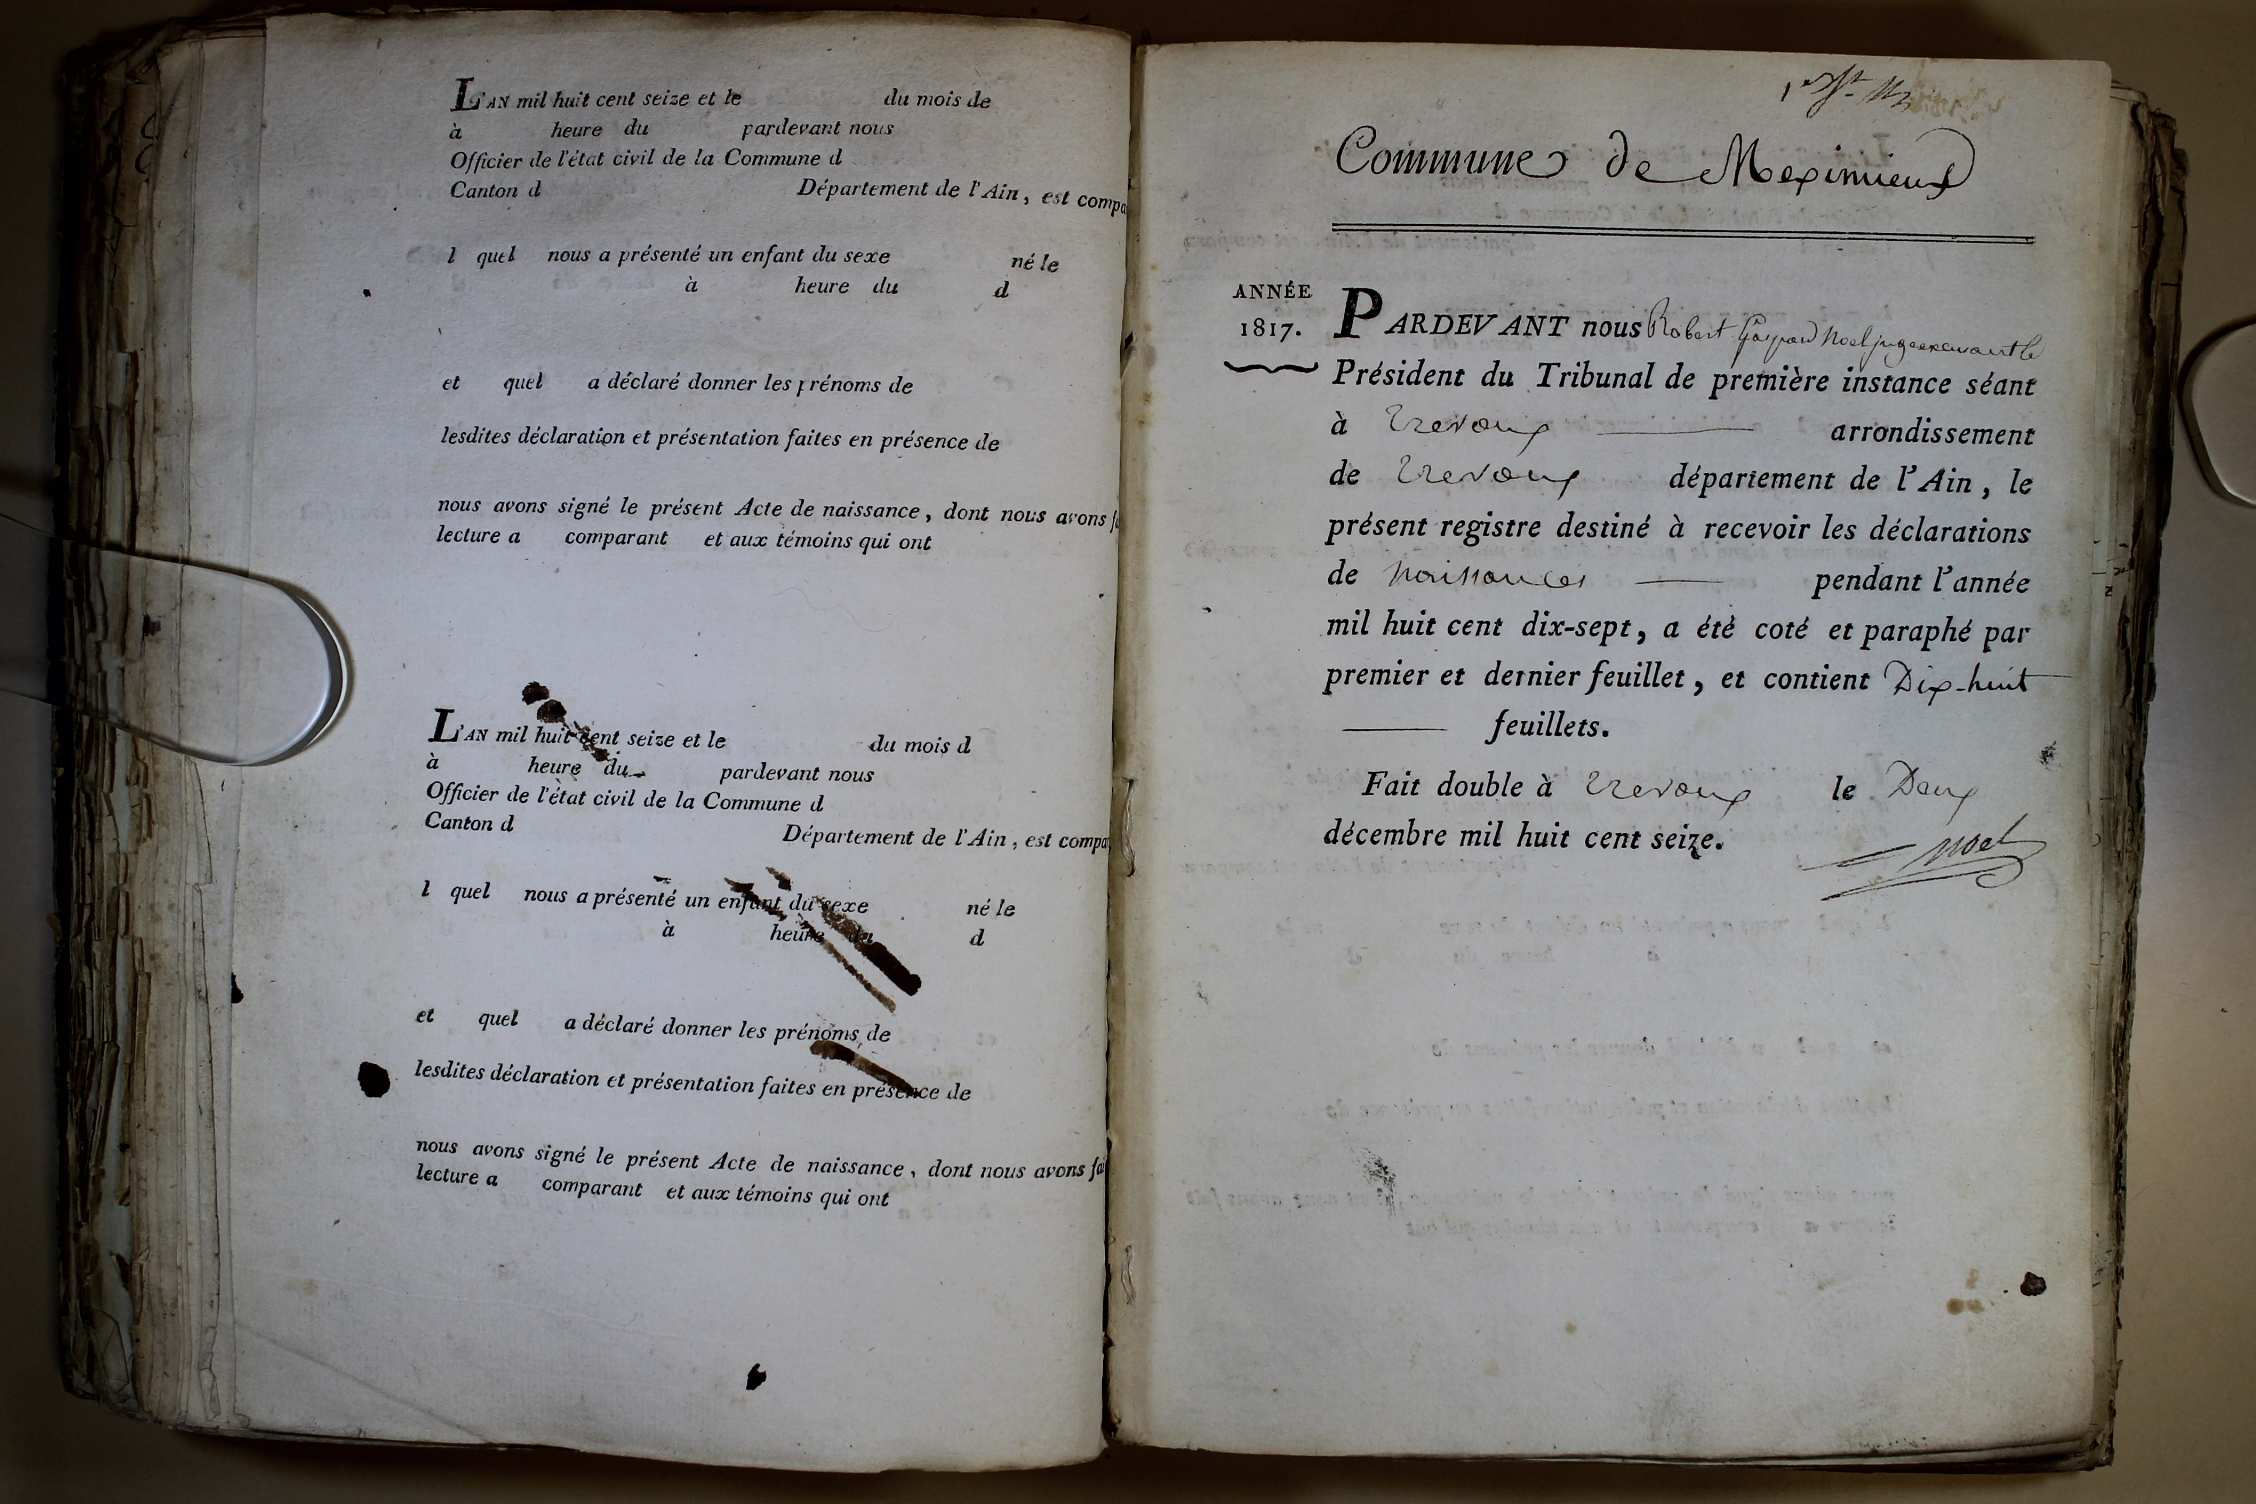 L'AN mil huit cent seize et le du mois de
à heure du pardevant nous
Officier de l'état civil de la Commune d
Canton d Département de l'Ain, est compa
l quel nous a présenté un enfant du sexe né le
à heure du d
et quel a déclaré donner les prénoms de
lesdites déclaration et présentation faites en présence de
nous avons signé le présent Acte de naissance, dont nous avons fa
lecture a comparant et aux témoins qui ont
L'AN mil huit cent seize et le du mois d
à heure du pardevant nous
Officier de l'état civil de la Commune d
Canton d Département de l'Ain, est compa
l quel nous a présenté un enfant du sexe né le
à heure du d
et quel a déclaré donner les prénoms de
lesdites déclaration et présentation faites en présence de
nous avons signé le présent Acte de naissance, dont nous avons fai
lecture a comparant et aux témoins qui ont
Commune de Meximieux
ANNÉE
1817.
PARDEVANT nous Robert Gaspard Noel juge exerçant le
Président du Tribunal de première instance séant
à Trevoux arrondissement
de Trevoux département de l'Ain, le
présent registre destiné à recevoir les déclarations
de Naissances pendant l'année
mil huit cent dix-sept, a été coté et paraphé par
premier et dernier feuillet, et contient Dix-huit
feuillets.
Fait double à Trevoux le Deux
décembre mil huit cent seize.
Noel